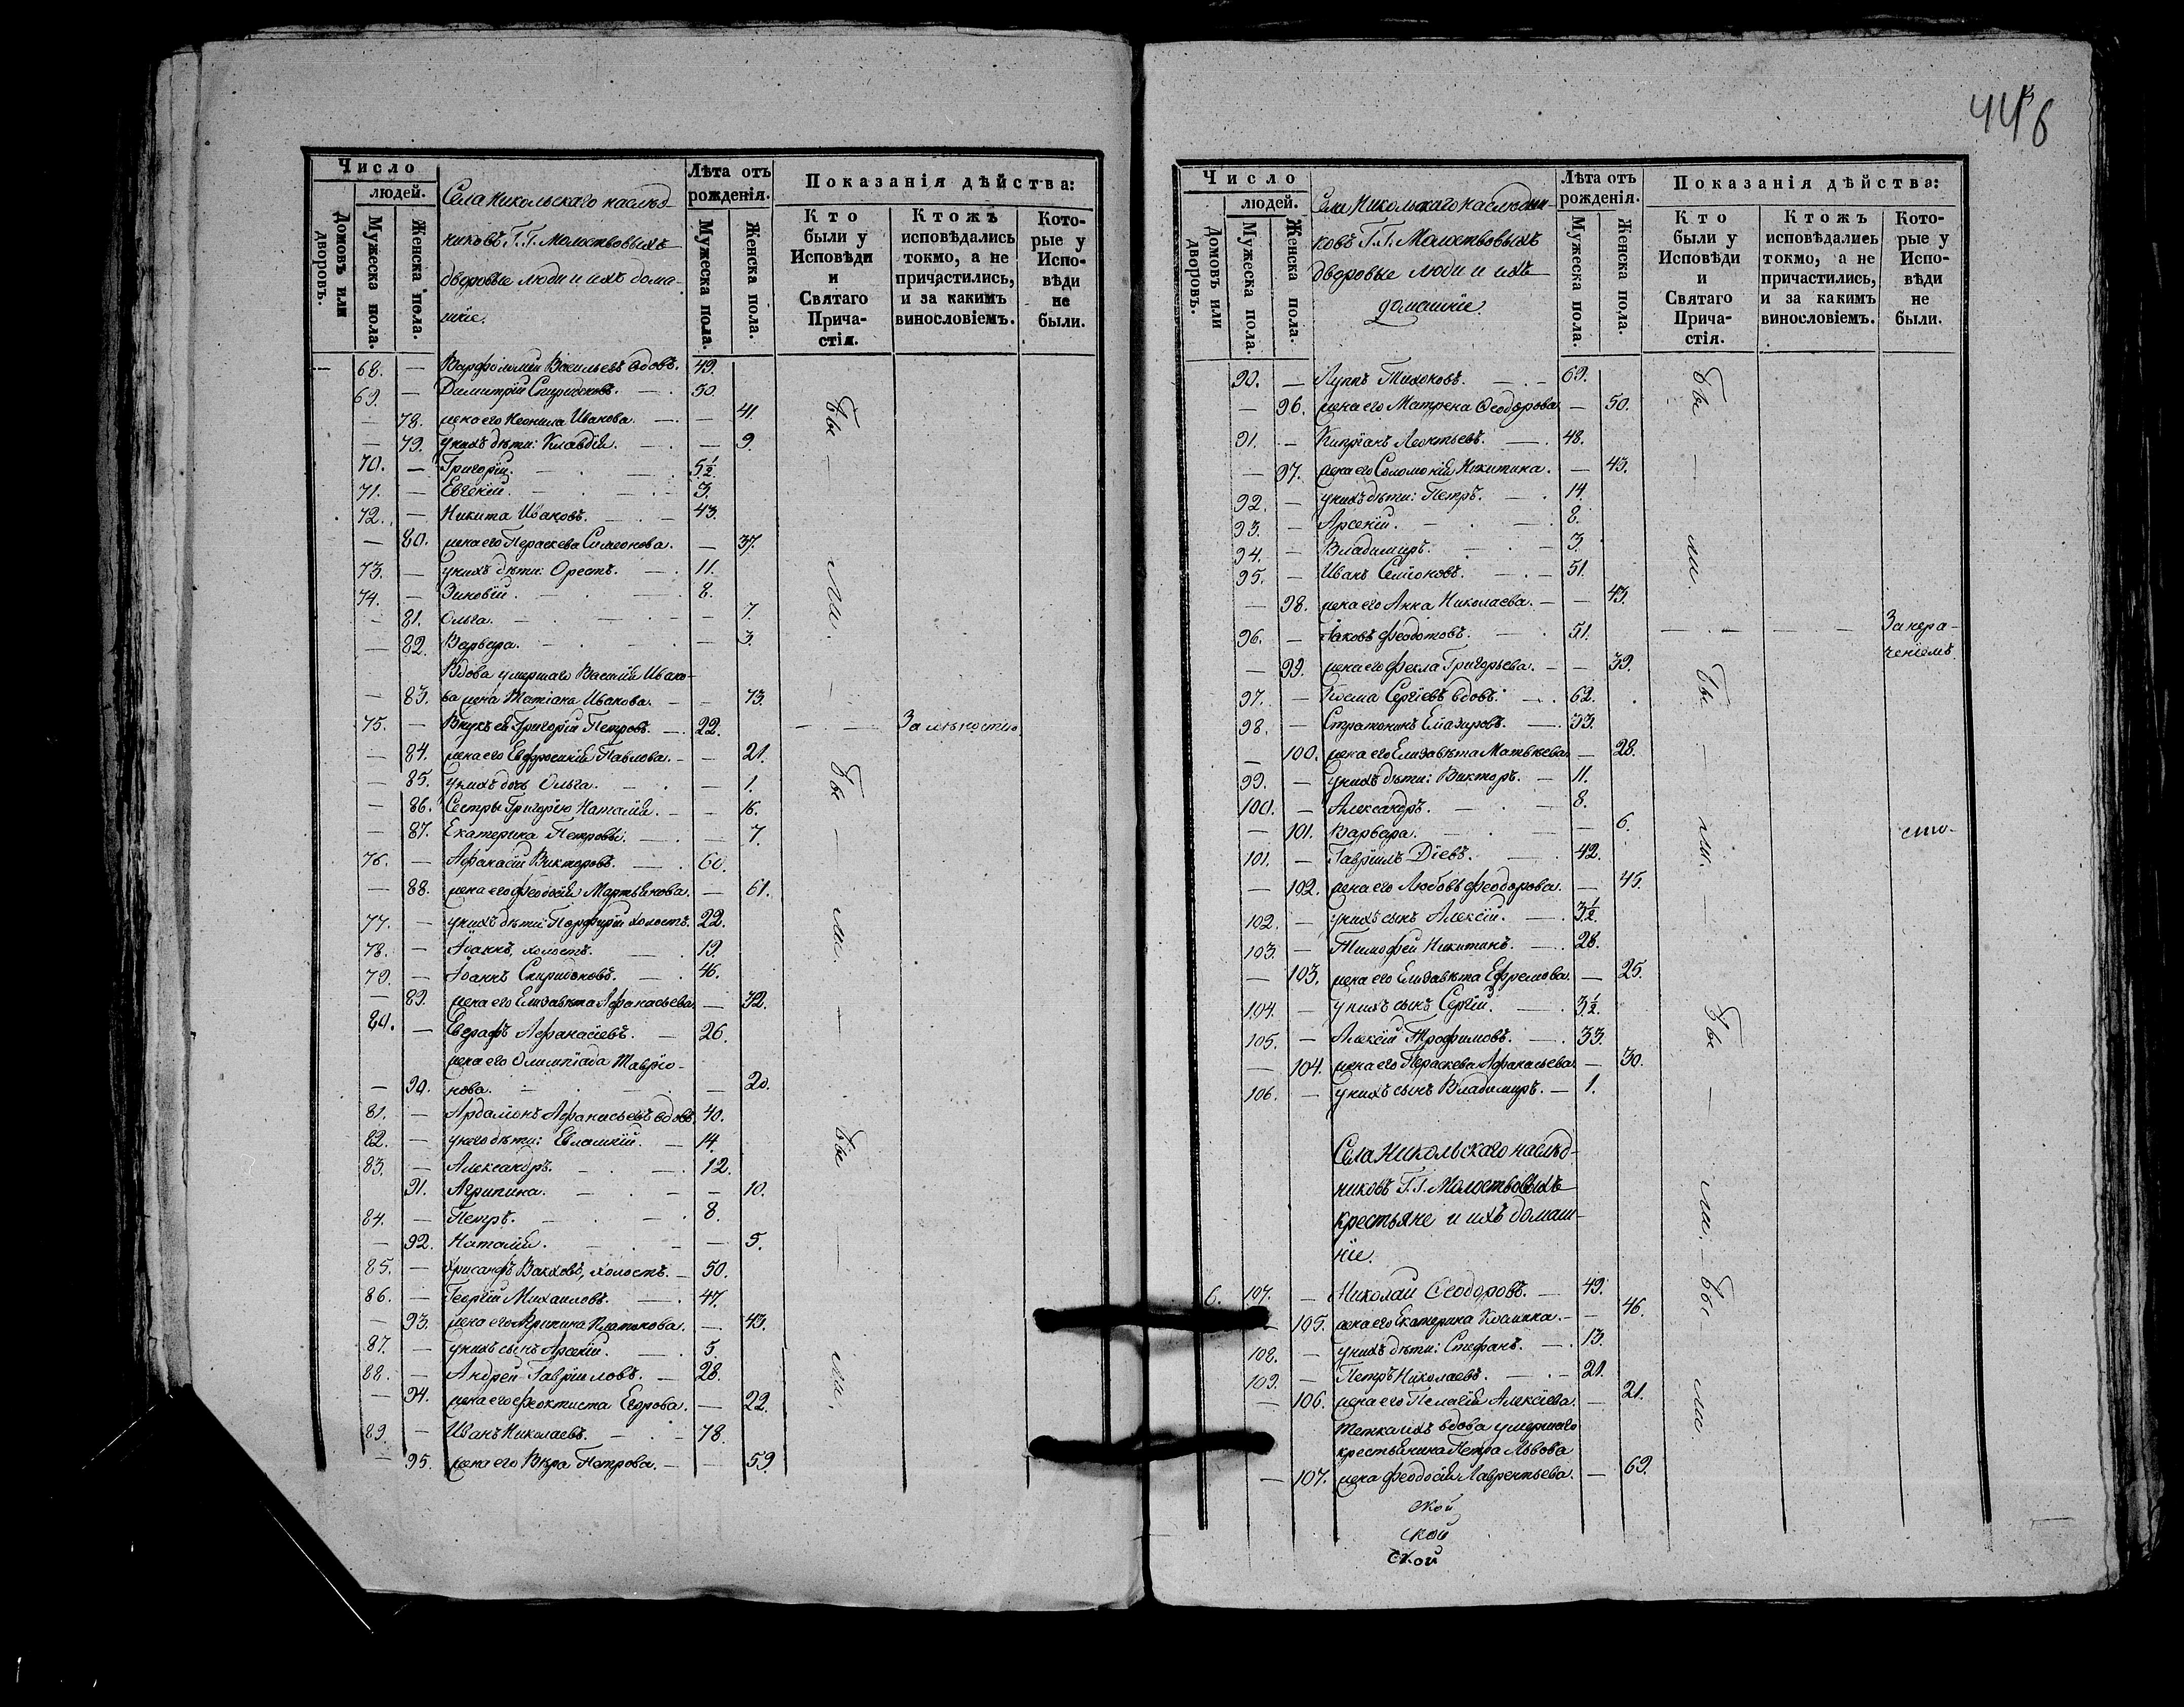 446
Число
людей.
Домовъ или дворовъ.
Мужеска пола.
Женска пола.
Села Никольскаго наслѣд-
никовъ Г.Г. Молоствовыхъ
дворовые люди и ихъ дома-
шніе.
Лѣта отъ рожденія.
Мужеска пола.
Женска пола.
Показанія дѣйства:
Кто были у Исповѣди и Святаго Причастія.
Ктожъ исповѣдались токмо, а не причастились, и за какимъ винословіемъ.
Которые у Исповѣди не были.
68. — Варфоломей Васильевъ вдовъ. 49.
69. — Димитрій Спиридоновъ. — 50.
— 78. жена его Неонила Иванова. — — 41.
— 79. у нихъ дѣти: Клавдія. — — 9.
70. — Григорій. — 5½.
71. — Евгеній. — 3.
72. — Никита Ивановъ. — 43.
— 80. жена его Параскева Симеонова. — 37.
73. — у нихъ дѣти: Орестъ. — 11.
74. — Зиновій. — 8.
— 81. Ольга. — — 7.
— 82. Варвара. — — 3.
Вдова умершаго Василія Ивано-
— 83. ва жена Татіана Иванова. — — 73.
75. — Внукъ ея Григорій Петровъ. — 22. — — За лѣностію
— 84. жена его Евфросинія Павлова. — — 21.
— 85. у нихъ дочь Ольга. — — 1.
— 86. Сестры Григорію Наталія. — — 16.
— 87. Екатерина Петровы. — — 7.
76. — Афанасій Викторовъ. — 60.
— 88. жена его Феодосія Мартьянова. — 61.
77. — у нихъ дѣти: Порфирій холостъ. 22.
78. — Іоаннъ, холостъ. — 19.
79. — Іоаннъ Спиридоновъ. — 46.
— 89. жена его Елизавета Афанасьева — 32.
80. — Евграфъ Афанасіевъ. — 26.
жена его Олимпіада Тавріо-
— 90. нова. — — 20.
81. — Ардаліонъ Афанасьевъ вдовъ 40.
82. — у него дѣти: Евлампій. — 14.
83. — Александръ. — 12.
91. Агрипина. — — 10.
84. — Петръ. — 8.
— 92. Наталія. — — 5.
85. — Хрисанфъ Вакховъ, холостъ. — 50.
86. — Георгій Михаиловъ. — 47.
— 93. жена его Агрипина Платонова. — 43.
87. — у нихъ сынъ Арсеній. — 5.
88. — Андрей Гавріиловъ. — 28.
— 94. жена его Феоктиста Егорова. — 22.
89. — Иванъ Николаевъ. — 78.
— 95. жена его Вѣра Петрова. — — 59.
бы — ли. — бы — ли. — бы — ли.
Число
людей.
Домовъ или дворовъ.
Мужеска пола.
Женска пола.
Села Никольскаго наслѣдни-
ковъ Г.Г. Молоствовыхъ
дворовые люди и ихъ
домашніе.
Лѣта отъ рожденія.
Мужеска пола.
Женска пола.
Показанія дѣйства:
Кто были у Исповѣди и Святаго Причастія.
Ктожъ исповѣдались токмо, а не причастились, и за какимъ винословіемъ.
Которые у Исповѣди не были.
90. — Луппъ Тихоновъ. — 69.
— 96. жена его Матрена Ѳеодорова — 50.
91. — Кипріанъ Леонтьевъ. — 48.
— 97. жена его Соломонія Никитина. — 43.
92. — у нихъ дѣти: Петръ. — 14.
93. — Арсеній. — 8.
94. — Владимиръ. — 3.
95. — Иванъ Семіоновъ. — 51.
— 98. жена его Анна Николаева. — — 43.
96. — Іаковъ Феодотовъ. — 51. — — — — За нера-
ченіемъ.
— 99. жена его Фекла Григорьева. — — 39.
97. — Косма Сергіевъ вдовъ. — 62.
98. — Стратоникъ — 33.
— 100. жена его Елизавета Матвѣева — 28.
99. — у нихъ дѣти: Викторъ. — 11.
100. — Александръ. — 8.
— 101. Варвара. — — 6.
101. — Гавріилъ Діевъ. — 42.
— 102. жена его Любовь Феодорова. — 45.
102. — у нихъ сынъ Алексій. — 3½.
103. — Тимофей Никитинъ. — 28.
— 103. жена его Елизавета Ефремова. — 25.
104. — у нихъ сынъ Сергій. — 3½.
105. — Алексій Трофимовъ. — 33.
— 104. жена его Параскева Афанасьева — 30.
106. — у нихъ сынъ Владимиръ. — 1.
Села Никольскаго наслѣд-
никовъ Г.Г. Молоствовыхъ
крестьяне и ихъ домаш-
ніе.
6. 107. — Николай Ѳеодоровъ. — 49.
— 105. жена его Екатерина — 46.
108. — у нихъ дѣти: Стефанъ. — 13.
109. — Петръ Николаевъ. — 21.
— 106. жена его Пелагія Алексіева. — 21.
Тетка ихъ вдова умершаго
крестьянина Петра Львова
— 107. жена Феодосія Лаврентьева. — 69.
бы — ли. бы — ли. — бы — ли. — бы ли.
ской
ской
ской